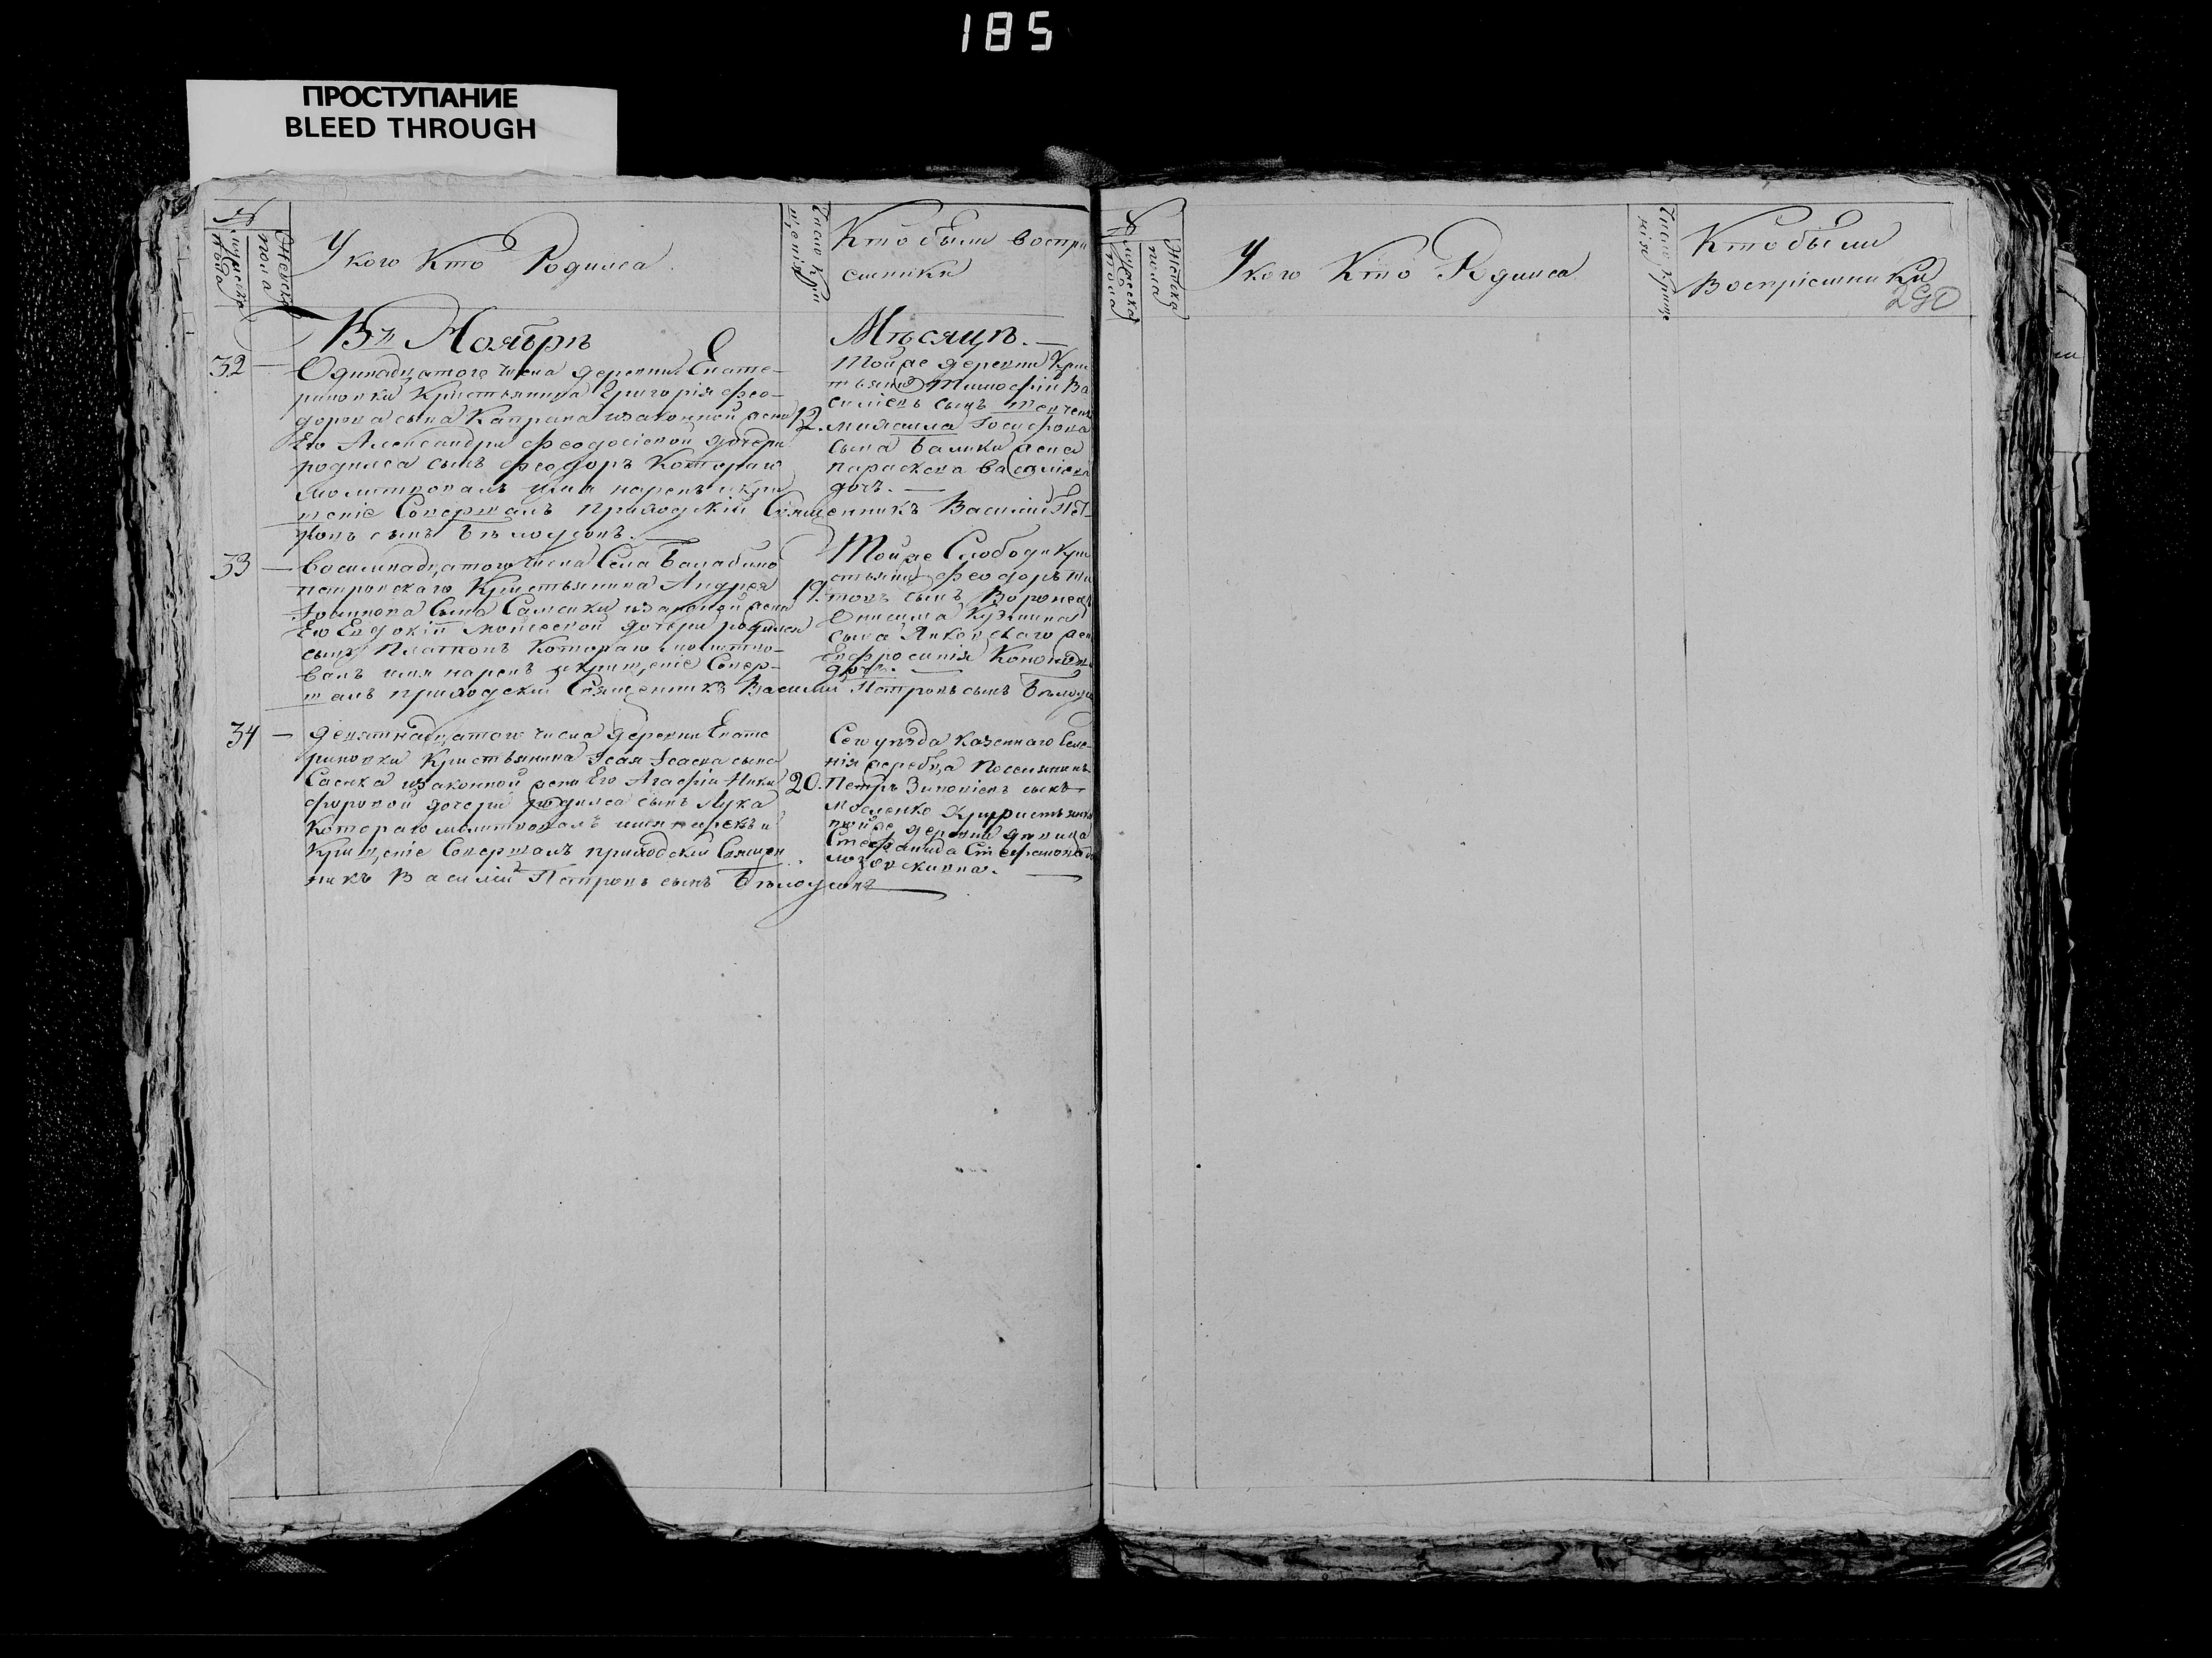 185
ПРОСТУПАНИЕ
BLEED THROUGH
№
мужеска пола
женска пола
У кого Кто Родился
Число Кри
щенія
Кто были воспрі
емники
Въ Ноябрѣ Мѣсяцѣ.
32
Одинадцатого числа деревни Екате-
риновки Кристьянина Григорія Фео-
дорова сына Капрана иззаконной жены
Его Александри Феодосіевой дочери
родился сынъ Феодоръ Котораго
молитвовалъ имя нарекъ и кри
щеніе Совершалъ приходскій Священникъ Василій Пет-
ровъ сынъ Бѣлоусовъ.
12.
Тойже деревни Крис
тьянинъ Тимофій Ва
силіевъ сынъ
Михаила Іосифова
сына Балики жена
Параскева Василіева
дочь.
33
Восемнадцатого числа Села Балабино
петровскаго Кристьянина Андрея
сына иззаконой жены
Его Евдокіи Моисеевой дочери родился
сынъ Платонъ Котораго молитво-
валъ имя нарекъ и крищеніе Совер-
шалъ приходскій Священникъ Василій Петровъ сынъ Бѣлоусо
19.
Тойже Слободи Кри
стьянинъ Феодоръ Ти
товъ сынъ
Онисима Кузмина
сына Янковскаго жен
Евфросинія
дочь.
34
Девятнадцатого числа деревни Екате
риновки Кристьянина Ісая Ісаева сына
Сасика иззаконной жени Его Агафіи Ники
форовой дочери родился сынъ Лука
Котораго молитвовалъ имя нарекъ и
Крищеніе Совершалъ приходскій Священ
никъ Василій Петровъ сынъ Бѣлоусовъ
20.
Сего уѣзда казеннаго Селе-
нія жеребца поселянинъ
Петръ Зиновіевъ сынъ
тойже деревни дѣвица
Стефанида Стефанова до
№
мужеска пола
женска пола
У кого Кто Рдился
Число Крище
нія
Кто были
Воспріемники
290